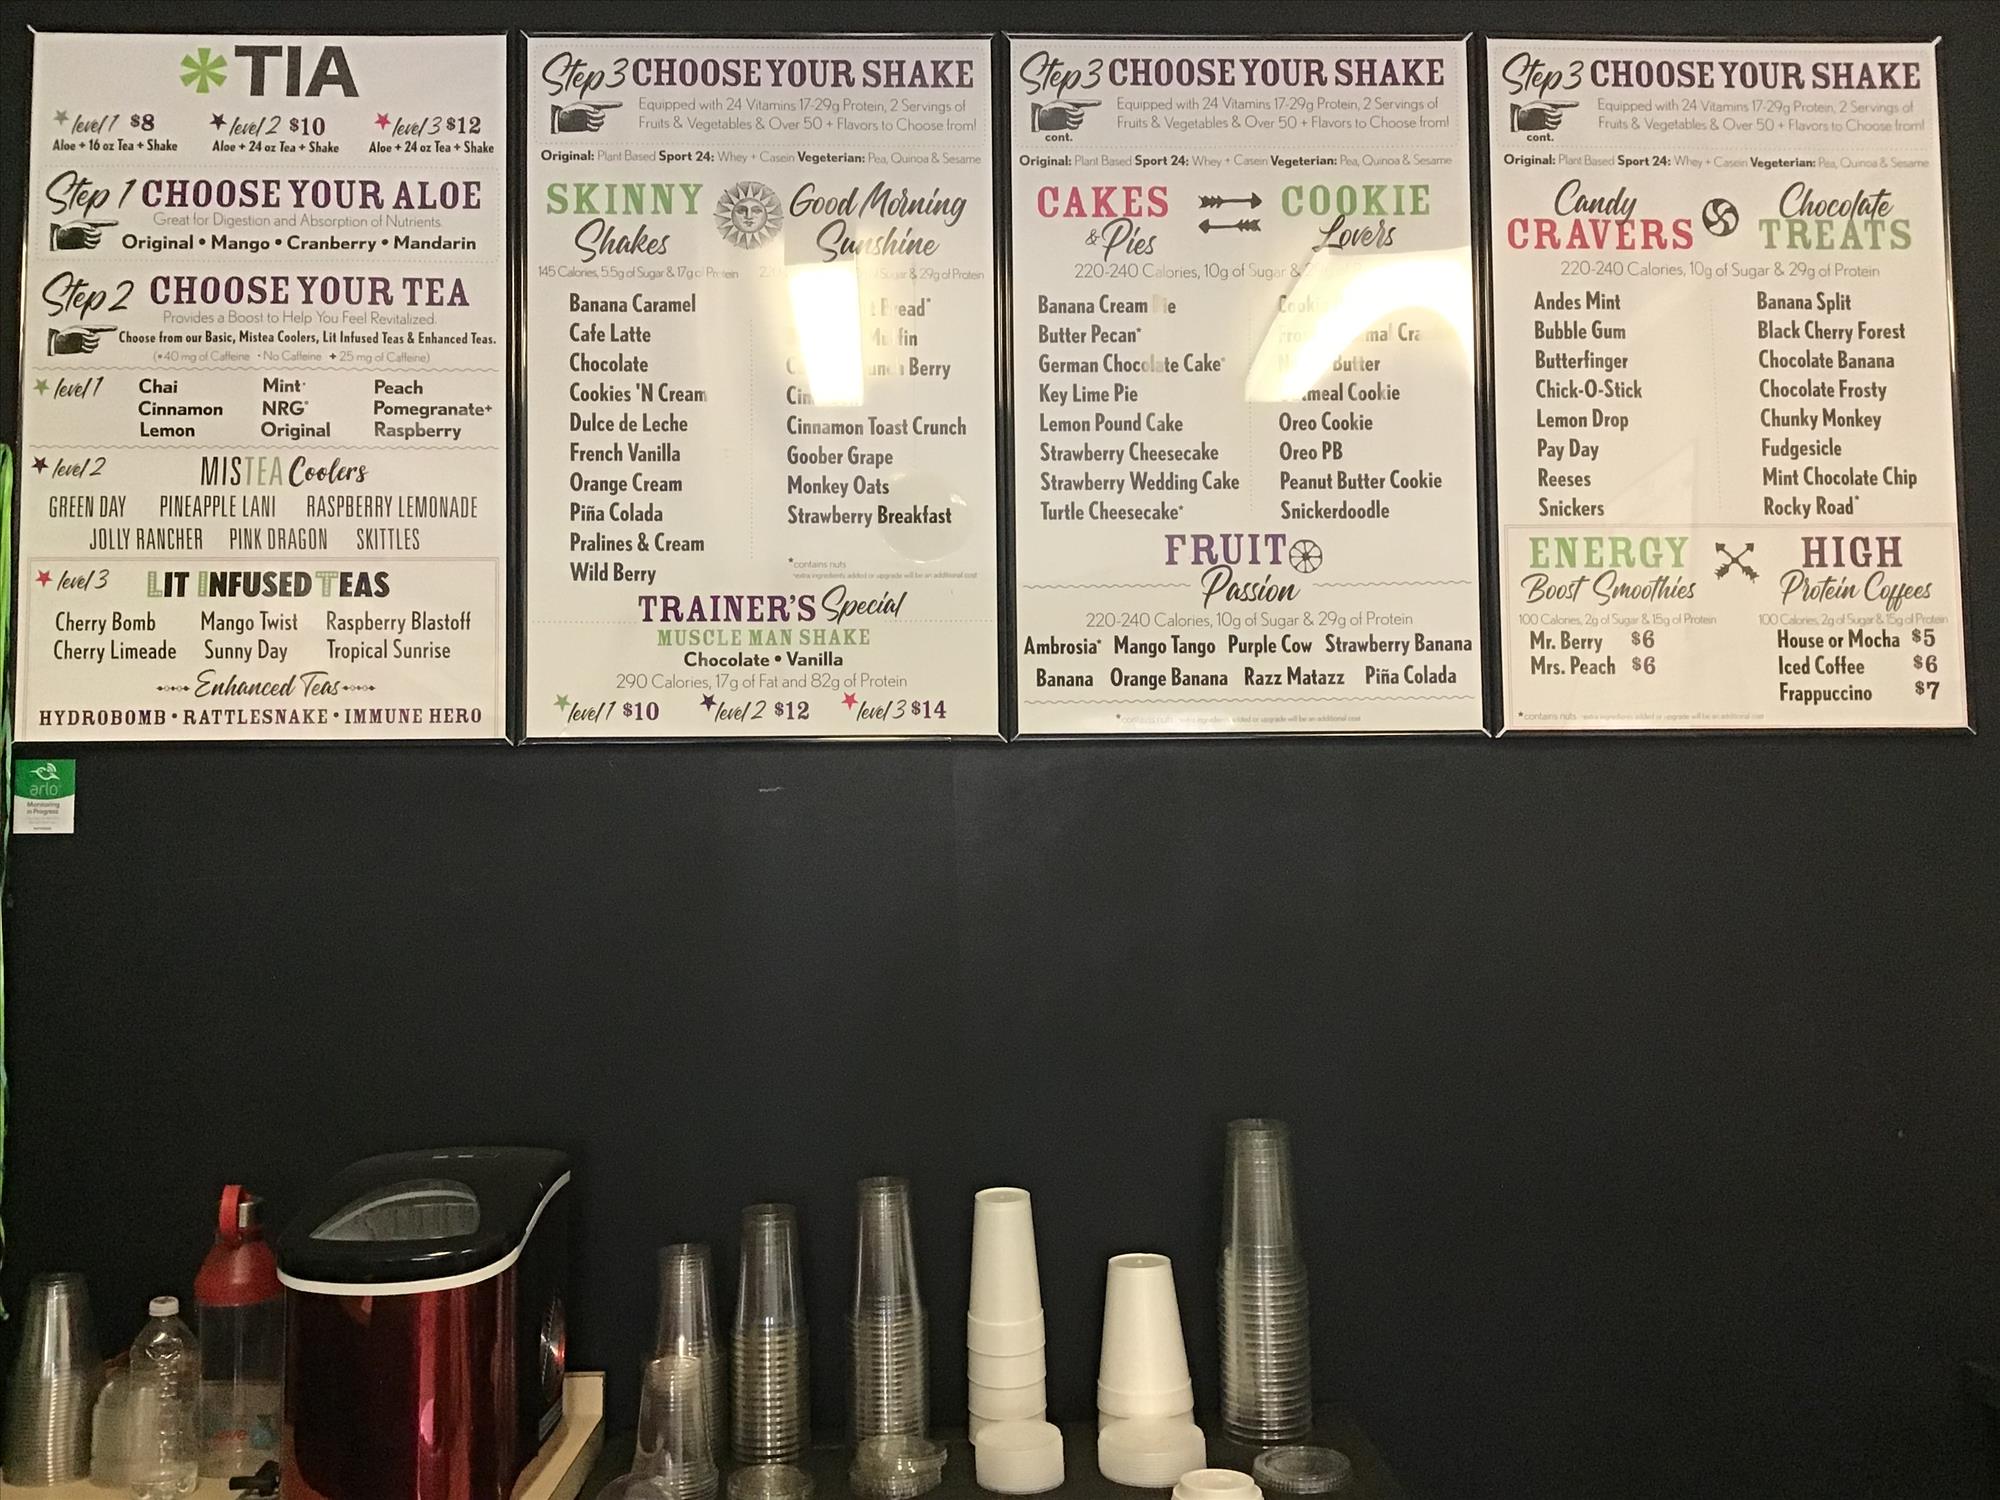 *TIA
level 1 $8 level 2 $10 level 3 $12
Aloe + 16 oz Tea + Shake Aloe + 24 oz Tea + Shake Aloe + 24 oz Tea + Shake
Step 1 CHOOSE YOUR ALOE
Great for Digestion and Absorption of Nutrients.
Original • Mango • Cranberry • Mandarin
Step 2 CHOOSE YOUR TEA
Provides a Boost to Help You Feel Revitalized.
Choose from our Basic, Mistea Coolers, Lit Infused Teas & Enhanced Teas.
(•40 mg of Caffeine • No Caffeine + 25 mg of Caffeine)
level 1 Chai Mint• Peach
Cinnamon NRG* Pomegranate+
Lemon Original Raspberry
level 2 MISTEA Coolers
GREEN DAY PINEAPPLE LANI RASPBERRY LEMONADE
JOLLY RANCHER PINK DRAGON SKITTLES
level 3 LIT INFUSED TEAS
Cherry Bomb Mango Twist Raspberry Blastoff
Cherry Limeade Sunny Day Tropical Sunrise
Enhanced Teas
HYDROBOMB • RATTLESNAKE • IMMUNE HERO
Step 3 CHOOSE YOUR SHAKE
Equipped with 24 Vitamins 17-29g Protein, 2 Servings of
Fruits & Vegetables & Over 50 + Flavors to Choose from!
Original: Plant Based Sport 24: Whey + Casein Vegeterian: Pea, Quinoa & Sesame
SKINNY
Shakes
145 Calories, 5.5g of Sugar & 17g of Protein
Banana Caramel
Cafe Latte
Chocolate
Cookies 'N Cream
Dulce de Leche
French Vanilla
Orange Cream
Piña Colada
Pralines & Cream
Wild Berry
Good Morning
Sunshine
Sugar & 29g of Protein
Bread*
Muffin
Berry
Cinnamon Toast Crunch
Goober Grape
Monkey Oats
Strawberry Breakfast
*contains nuts
*extra ingredients added or upgrade will be an additional cost
TRAINER'S Special
MUSCLE MAN SHAKE
Chocolate • Vanilla
290 Calories, 17g of Fat and 82g of Protein
level 1 $10 level 2 $12 level 3 $14
Step 3 CHOOSE YOUR SHAKE
cont.
Equipped with 24 Vitamins 17-29g Protein, 2 Servings of
Fruits & Vegetables & Over 50 + Flavors to Choose from!
Original: Plant Based Sport 24: Whey + Casein Vegeterian: Pea, Quinoa & Sesame
CAKES
& Pies
COOKIE
Lovers
220-240 Calories, 10g of Sugar &
Banana Cream Pie
Butter Pecan*
German Chocolate Cake*
Key Lime Pie
Lemon Pound Cake
Strawberry Cheesecake
Strawberry Wedding Cake
Turtle Cheesecake*
Butter
Oatmeal Cookie
Oreo Cookie
Oreo PB
Peanut Butter Cookie
Snickerdoodle
FRUIT
Passion
220-240 Calories, 10g of Sugar & 29g of Protein
Ambrosia* Mango Tango Purple Cow Strawberry Banana
Banana Orange Banana Razz Matazz Piña Colada
*contains nuts *extra ingredients added or upgrade will be an additional cost
Step 3 CHOOSE YOUR SHAKE
cont.
Equipped with 24 Vitamins 17-29g Protein, 2 Servings of
Fruits & Vegetables & Over 50 + Flavors to Choose from!
Original: Plant Based Sport 24: Whey + Casein Vegeterian: Pea, Quinoa & Sesame
Candy
CRAVERS
Chocolate
TREATS
220-240 Calories, 10g of Sugar & 29g of Protein
Andes Mint
Bubble Gum
Butterfinger
Chick-O-Stick
Lemon Drop
Pay Day
Reeses
Snickers
Banana Split
Black Cherry Forest
Chocolate Banana
Chocolate Frosty
Chunky Monkey
Fudgesicle
Mint Chocolate Chip
Rocky Road*
ENERGY
Boost Smoothies
100 Calories, 2g of Sugar & 15g of Protein
Mr. Berry $6
Mrs. Peach $6
HIGH
Protein Coffees
100 Calories, 2g of Sugar & 15g of Protein
House or Mocha $5
Iced Coffee $6
Frappuccino $7
*contains nuts *extra ingredients added or upgrade will be an additional cost
arlo
Monitoring
in Progress